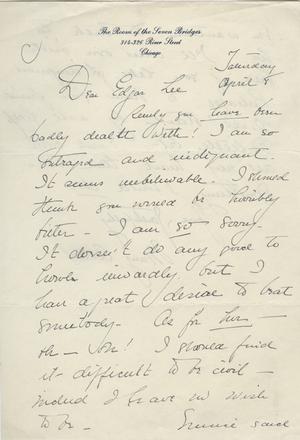 The Room of the Seven Bridges
314-326 River Street
Chicago
Saturday
April 8
Dear Edgar Lee
Surely you have been
badly dealt with! I am so
outraged and indignant.
It seems unbelievable. I should
think you would be horribly
bitter - I am so sorry.
It doesn't do any good to
howl inwardly but I
have a great desire to beat
somebody - As for her -
oh - Joh! I should find
it difficult to be civil -
indeed I have no wish
to be - Eunice said